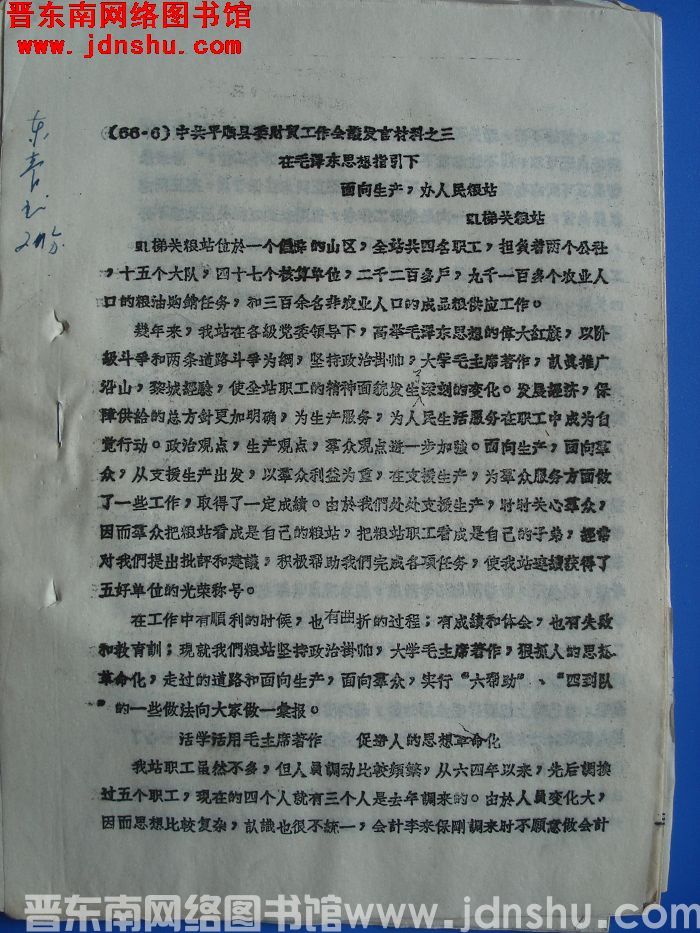 晋东南网络图书馆
www.jdnshu.com
(66·6)中共平顺县委财贸工作会議发言材料之三
在毛泽东思想指引下
面向生产，办人民粮站
虹梯关粮站
虹梯关粮站位於一个偏僻的山区，全站共四名职工，担负着两个公社
，十五个大队，四十七个核算单位，二千二百多戶，九千一百多个农业人
口的粮油购銷任务，和三百余名非农业人口的成品粮供应工作。
幾年来，我站在各級党委领导下，高举毛泽东思想的偉大紅旗，以阶
級斗爭和两条道路斗爭为綱，坚持政治掛帅，大学毛主席著作，認眞推广
沿山，黎城經驗，使全站职工的精神面貌发生了深刻的变化。发展經济，保
障供給的总方針更加明确，为生产服务，为人民生活服务在职工中成为自
觉行动。政治观点，生产观点，羣众观点进一步加強。面向生产，面向羣
众，从支援生产出发，以羣众利益为重，在支援生产，为羣众服务方面做
了一些工作，取得了一定成績。由於我們处处支援生产，时时关心羣众，
因而羣众把粮站看成是自己的粮站，把粮站职工看成是自己的子弟，經常
对我們提出批評和建議，积极帮助我們完成各項任务，使我站連續获得了
五好单位的光荣称号。
在工作中有順利的时候，也有曲折的过程；有成績和体会，也有失敗
和教育訓；現就我們粮站坚持政治掛帅，大学毛主席著作，狠抓人的思想
革命化，走过的道路和面向生产，面向羣众，实行“六帮助”、“四到队
”的一些做法向大家做一彙报。
活学活用毛主席著作 促进人的思想革命化
我站职工虽然不多，但人員調动比較頻繁，从六四年以来，先后調換
过五个职工，現在的四个人就有三个人是去年調来的。由於人員变化大，
因而思想比較复杂，認識也很不統一，会計李来保剛調来时不願意做会計
晋东南网络图书馆 www.jdnshu.com